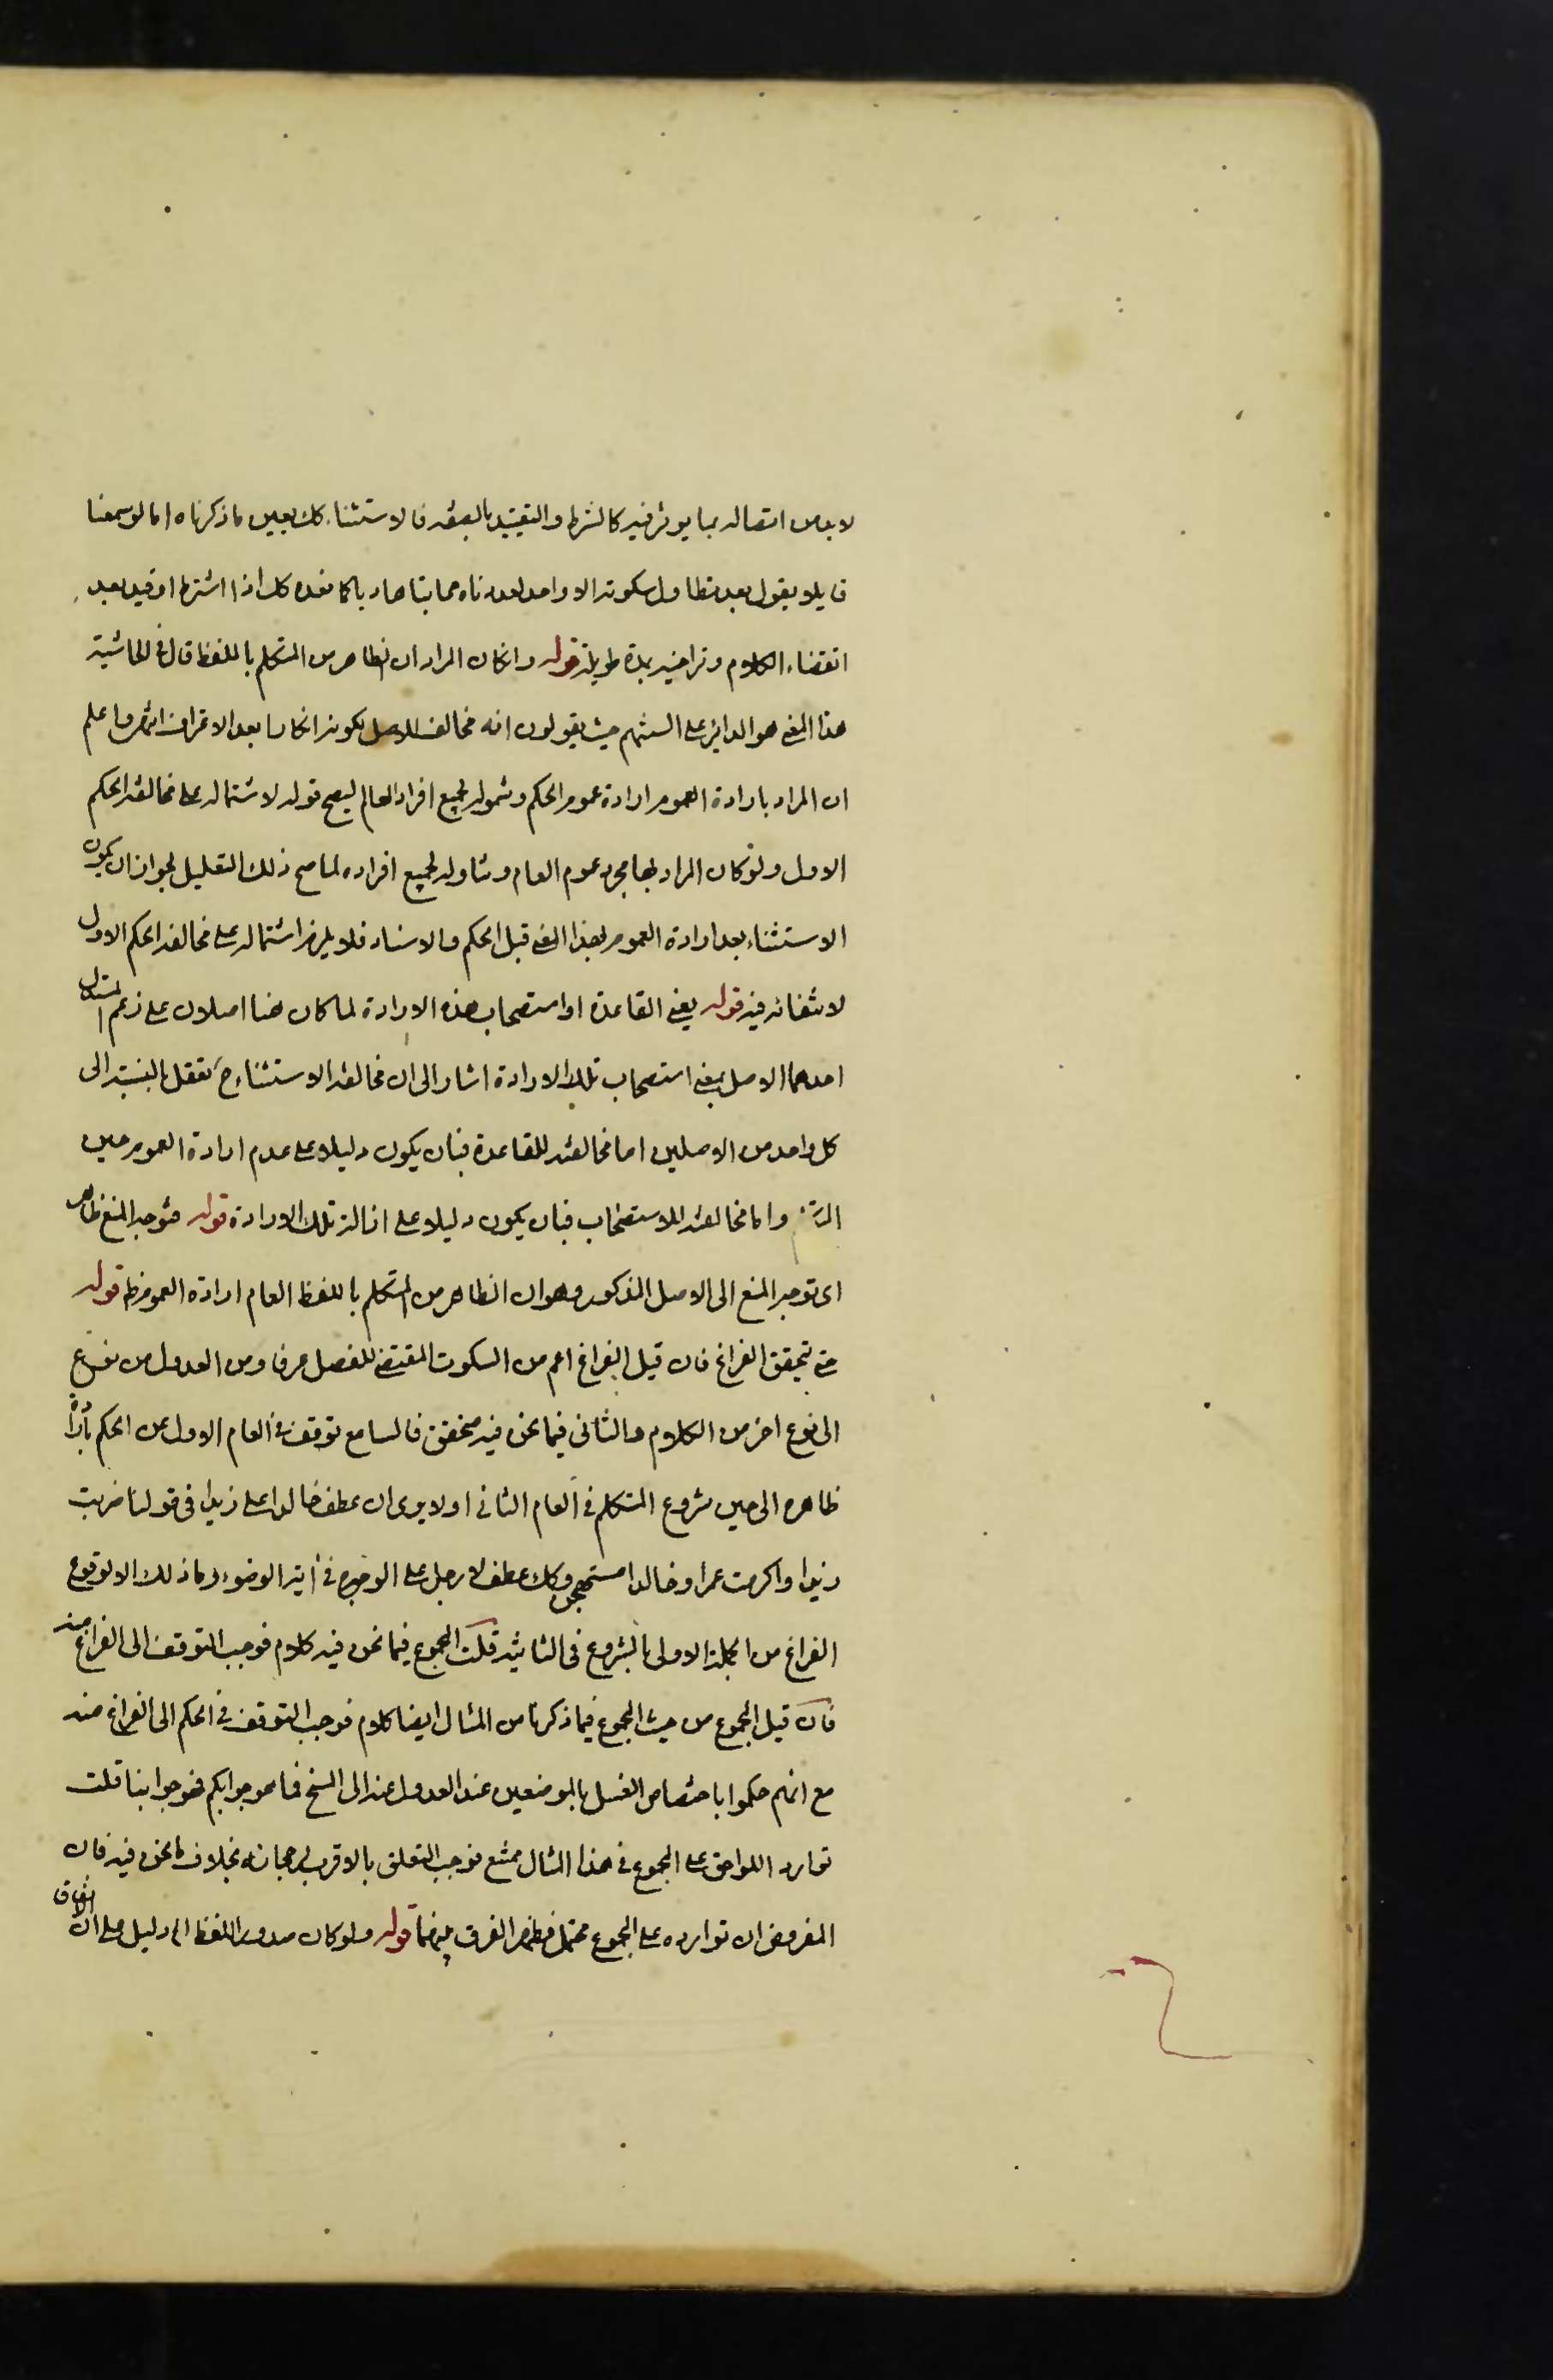 لا بد من اتصاله بما يوثر فيه كالشرط والتقييد بالصفه فالاستثناء كك يعين ما ذكرناه انا لو سمعنا
قايلا يقول بعد تطاول سكوته الا واحد لعددناه هاذيا كما نعده كك اذا اشترط او قيد بعد
انقضاء الكلام وتراخيه بمدة طويلة قوله وان كان المراد ان الظاهر من المتكلم باللفظ قال في الحاشية
هذا المعنى هو الداير على السنتهم حيث يقولون انه مخالف للاصل لكونه انكارا بعد الاعتراف انتهى واعلم
ان المراد بارادة العموم ارادة عموم الحكم وشموله لجميع افراد العام ليصح قوله لاشتماله على مخالفة الحكم
الاول ولو كان المراد بها مجرد عموم العام وتناوله لجميع افراده لما صح ذلك التعليل لجواز ان يكون
الاستثناء بعد ارادة العموم بهذا المعنى قبل الحكم والاسناد فلا يلزم اشتماله على مخالفة الحكم الاول
لانتفائه فيه قوله يعنى القاعدة او استصحاب هذه الارادة لما كان هنا اصلان على زعم المستدل
احدهما الاصل بمعنى استصحاب تلك الارادة اشار الى ان مخالفة الاستثناء ح تعقل بالنسبة الى
كل واحد من الاصلين اما مخالفته للقاعدة فبان يكون دليلا على عدم ارادة العموم حين
واما مخالفته للاستصحاب فبان يكون دليلا على ازالة تلك الارادة قوله فتوجه المنع ظاهر
اى توجه المنع الى الاصل المذكور وهو ان الظاهر من المتكلم باللفظ العام ارادة العموم ظ قوله
حتى يتحقق الفراغ فان قيل الفراغ اعم من السكوت المقتضى للفصل عرفا ومن العدول من نوع
الى نوع اخر من الكلام والثانى فيما نحن فيه متحقق فالسامع توقف في العام الاول عن الحكم بارادة
ظاهره الى حين شروع المتكلم في العام الثاني اولا يرى ان عطف خالدا على زيدا فى قولنا ضربت
زيدا واكرمت عمرا وخالدا مستهجن وكك عطف الارجل على الوجوه في آية الوضوء وما ذلك الا لوقوع
الفراغ من الجملة الاولى بالشروع فى الثانية قلت المجموع فيما نحن فيه كلام فوجب التوقف الى الفراغ منه
فان قيل المجموع من حيث المجموع فيما ذكرنا من المثال ايضا كلام فوجب التوقف في الحكم الى الفراغ منه
مع انهم حكموا باختصاص الغسل بالموضعين عند العدول عنه الى المسح فما هو جوابكم فهو جوابنا قلت
توارد اللواحق على المجموع في هذا المثال ممتنع فوجب التعلق بالاقرب لرجحانه بخلاف ما نحن فيه فان
المفروض ان توارده على المجموع محتمل فظهر الفرق بينهما قوله ولو كان صدور اللفظ الى دليل على ان اتفاق